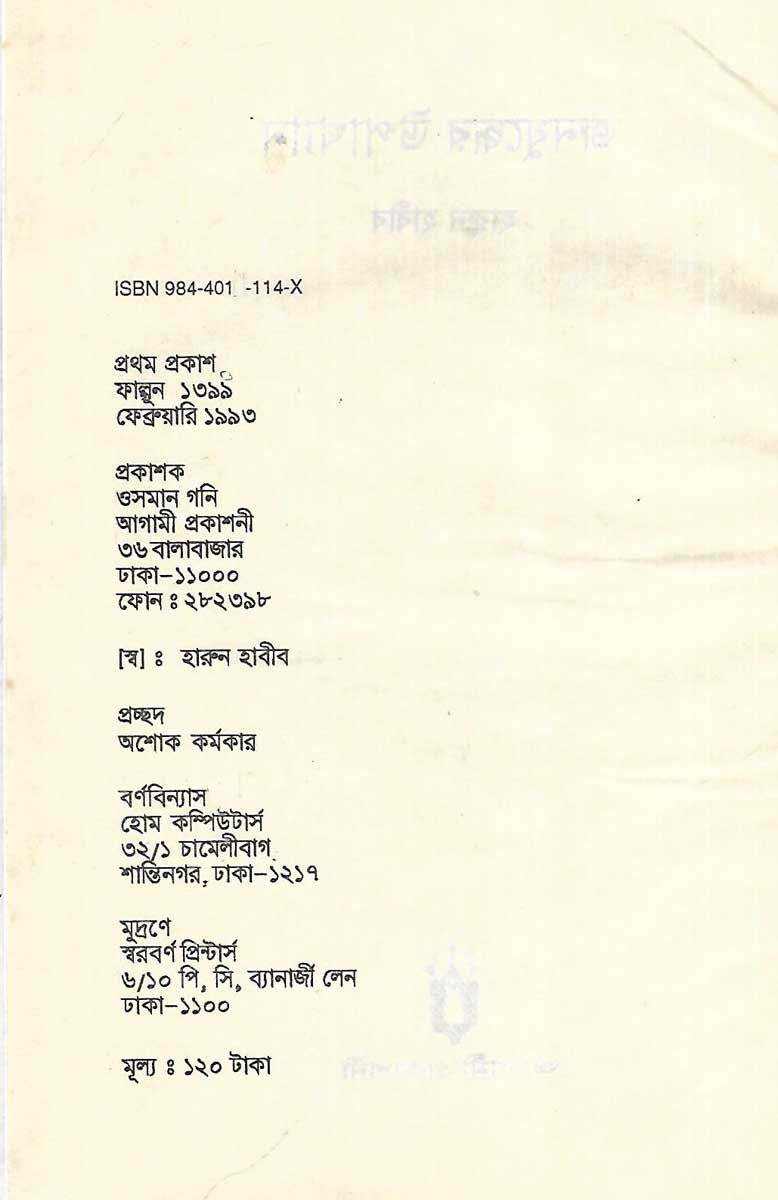 ISBN 984-401 -114-X
প্রথম প্রকাশ
ফাল্গুন ১৩৯৯
ফেব্রুয়ারি ১৯৯৩
প্রকাশক
ওসমান গনি
আগামী প্রকাশনী
৩৬ বালাবাজার
ঢাকা-১১০০০
ফোন : ২৮২৩৯৮
[স্ব] : হারুন হাবীব
প্রচ্ছদ
অশোক কর্মকার
বর্ণবিন্যাস
হোম কম্পিউটার্স
৩২/১ চামেলীবাগ
শান্তিনগর, ঢাকা-১২১৭
মুদ্রণে
স্বরবর্ণ প্রিন্টার্স
৬/১০ পি, সি, ব্যানার্জী লেন
ঢাকা-১১০০
মূল্য : ১২০ টাকা